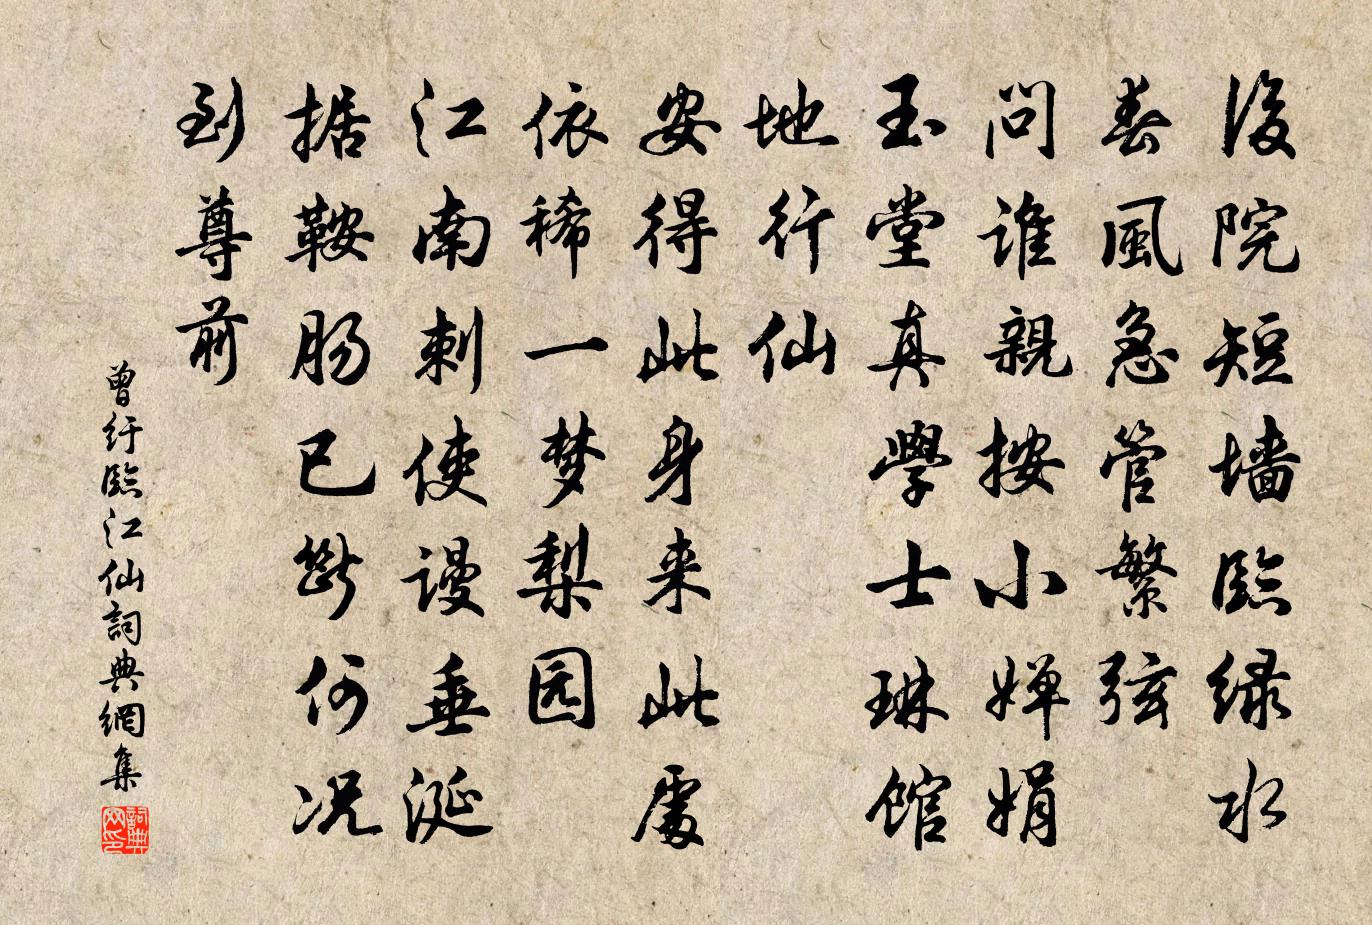 後院短墙臨绿水
春風急管繁弦
問谁親按小婵娟
玉堂真學士琳馆
地行仙
安得此身来此處
依稀一梦梨园
江南刺使谩垂涎
据鞍肠已断何况
到尊前
曾纡臨江仙詞典網集
詞典網印